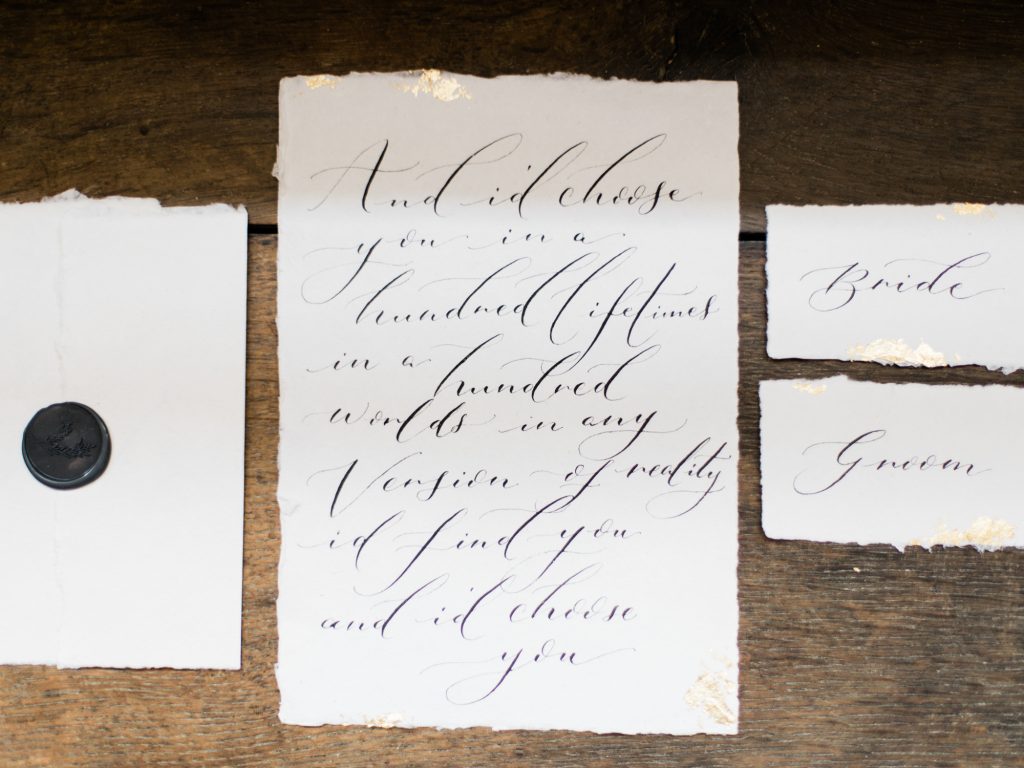 And i'd choose
you in a
hundred lifetimes
in a hundred
worlds in any
Version of reality
id find you
and i'd choose
you
Bride
Groom